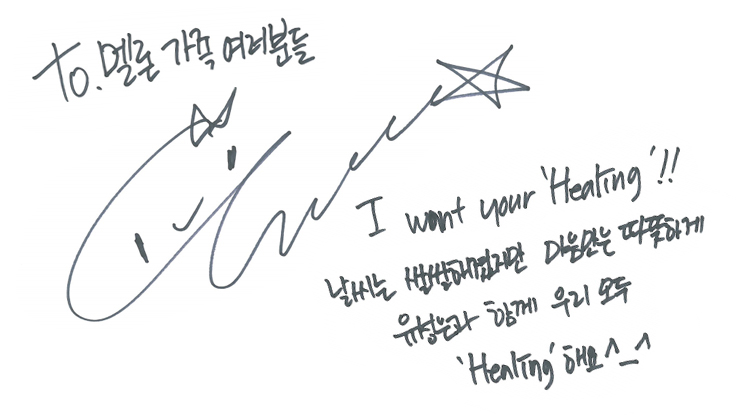 To. 멜론 가족 여러분들
I want your 'Healing'!!
날씨는 쌀쌀해졌지만 마음만은 따뜻하게
유성은과 함께 우리 모두
'Healing'해요^_^